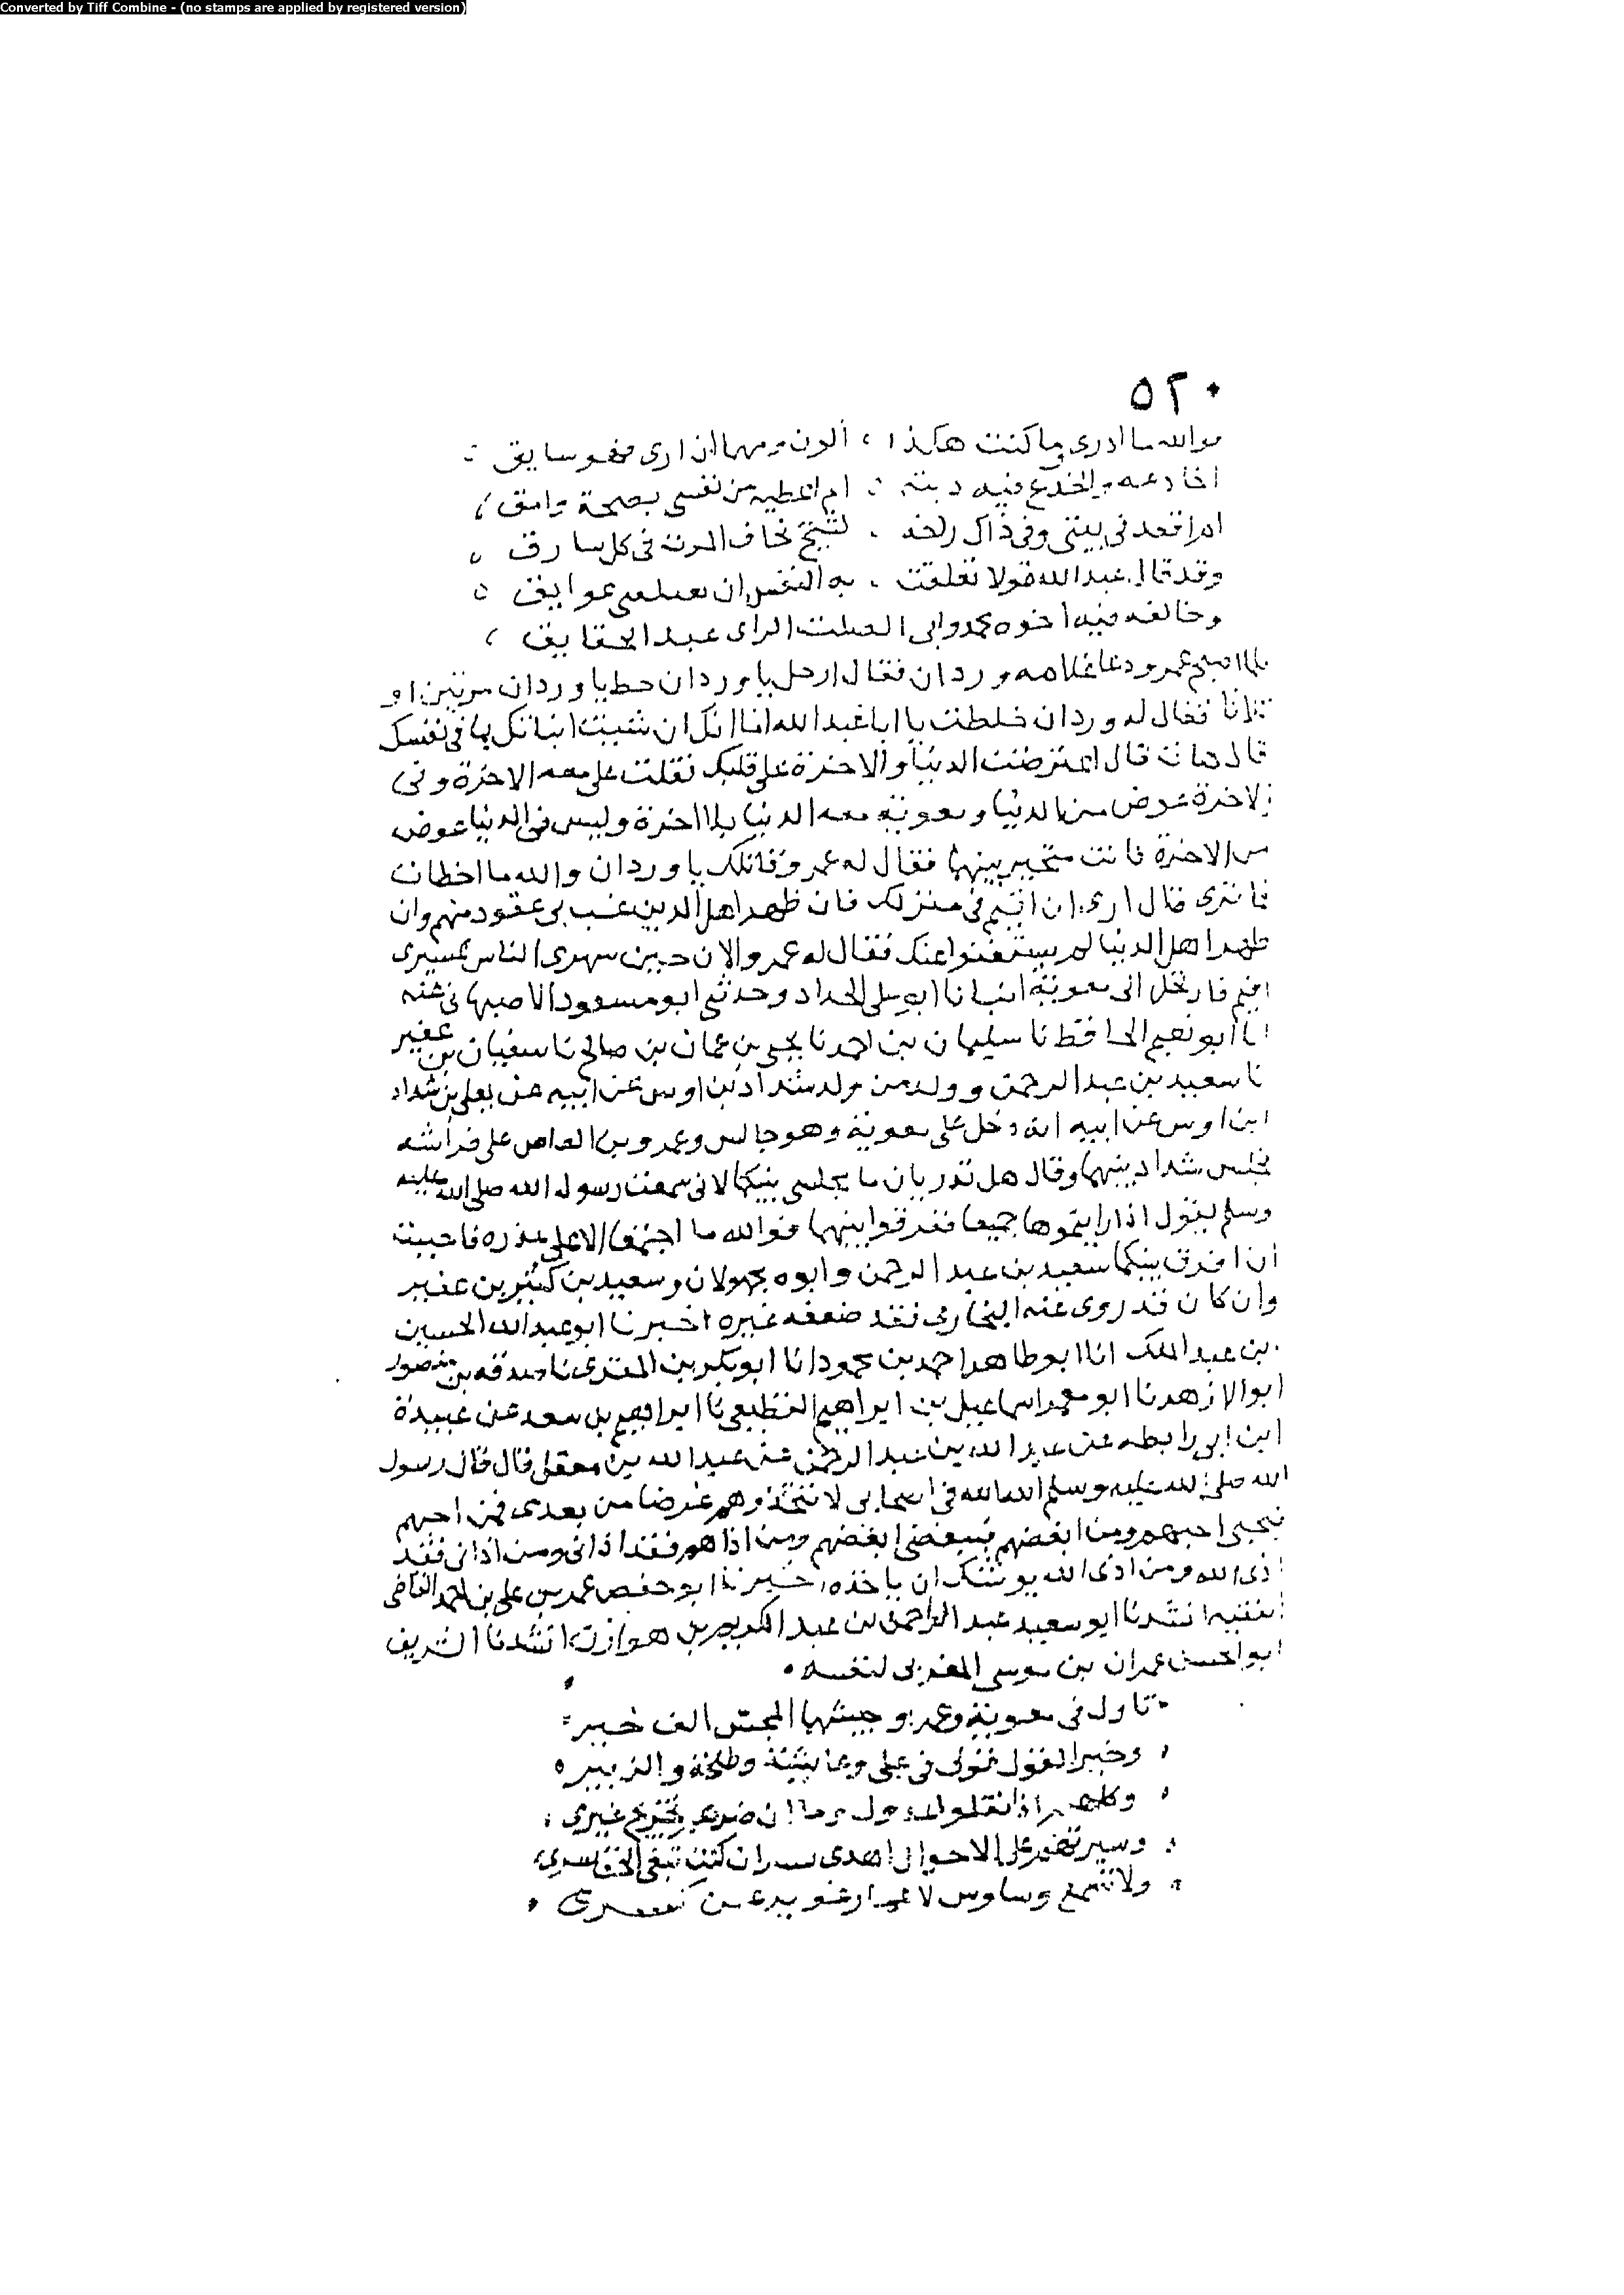 Converted by Tiff Combine - (no stamps are applied by registered version)
٥٢٠
فوالله ما ادرى وما كنت هكذا ، اكون ومهما ان ارى فهو سايق
اخادعه والخدع فيه دنية ام اعطيه من نفسى نصحة وامق
ام اقعد فى بيتى وفى ذاك راحة لشيخ يخاف الموت فى كل شارق
وقد قال عبد الله قولا تعلقت به النفس ان لم يعتلقنى عوايق
وخالفه فيه اخوه محمد وانى لصلت الراى عند الحقايق
فلما اصبح عمرو دعا غلامه وردان فقال ارحل يا وردان حط يا وردان مرتين او
ثلاثا فقال له وردان خلطت يا ابا عبد الله اما انك ان شيت انباتك بما فى نفسك
قال هات قال اعترضت الدنيا والاخرة على قلبك فقلت على معه الاخرة وفى
الاخرة عوض من الدنيا ومعوية معه الدنيا بلا اخرة وليس فى الدنيا عوض
من الاخرة فانت متحير بينهما فقال له عمرو قاتلك يا وردان والله ما اخطات
فما ترى قال ارى ان اقيم فى منزلك فان ظهر اهل الدين عشت فى عفو دينهم وان
ظهر اهل الدنيا لم يستغنوا عنك فقال له عمرو الان حين شهرى الناس بمسيرى
اقيم فارتحل الى معوية انبانا ابو على الحداد وحدثنى ابو مسعود الاصبهانى عنه
انا ابو نعيم الحافظ نا سليمان بن احمد نا يحيى بن عثمان بن صالح نا سفيان بن عفير
نا سعيد بن عبد الرحمن وولده من ولد شداد بن اوس عن ابيه عن يعلى بن شداد
ابن اوس عن ابيه انه دخل على معوية وهو جالس وعمرو بن العاص على فراشه
فجلس شداد بينهما وقال هل تدريان ما يجلسنى بينكما لانى سمعت رسول الله صلى الله عليه
وسلم يقول اذا رايتموهما جميعا ففرقوا بينهما فوالله ما اجتمعا الا على غدره فاحببت
ان افرق بينكما سعيد بن عبد الرحمن وابوه مجهولان وسعيد بن كثير بن عفير
وان كان قد روى عنه البخارى فقد ضعفه غيره اخبرنا ابو عبد الله الحسين
بن عبد الملك انا ابو طاهر احمد بن محمود انا ابو بكر بن المقرى نا صدقه بن منصور
ابو الازهر نا ابو معمر اسماعيل بن ابراهيم القطيعى نا ابراهيم بن سعد عن عبيدة
ابن ابى رابطه عن عبد الله بن عبد الرحمن عن عبد الله بن معقل قال قال رسول
الله صلى الله عليه وسلم الله الله فى اصحابى لا تتخذوهم غرضا من بعدى فمن احبهم
فبحبى احبهم ومن ابغضهم فببغضى ابغضهم ومن اذاهم فقد اذانى ومن اذانى فقد
اذى الله ومن اذى الله يوشك ان ياخذه اخبرنا ابو حفص عمر بن على بن احمد القاضى
الفقيه انشدنا ابو سعيد عبد الرحمن بن عبد الكريم بن هوازن انشدنا الشريف
ابو الحسن عمران بن موسى المغربى لنفسه
تاول فى معوية وعمرو وجيشهما المجتبى الف خير
وخير القول قولى فى على وعايشة وطلحة والزبير
وكلهم اذا نقلوا
وسير على الاحوال اهدى ان كنت تبغى الحق سيرى
ولا تسمع وساوس